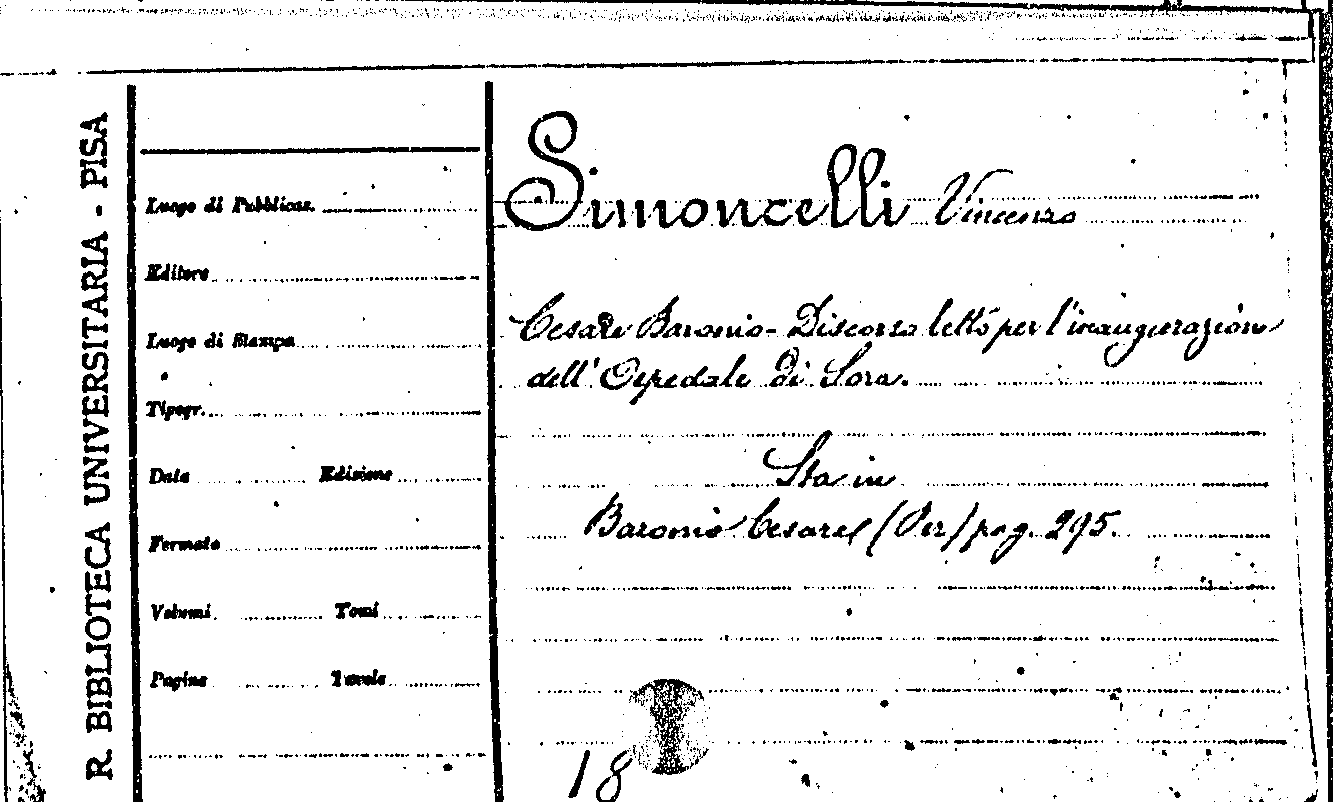 R. BIBLIOTECA UNIVERSITARIA - PISA
Luogo di Pubblicaz.
Editore
Luogo di Stampa
Tipogr.
Data Edizione
Formato
Volumi Tomi
Pagine Tavole
Simoncelli Vincenzo
Cesare Baronio - Discorso letto per l'inaugurazione
dell' Ospedale di Sora.
Sta in
Baronio Cesare (Per) pag. 295.
18